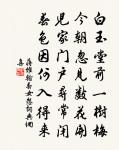 白玉堂前一樹梅
今朝忽見數花開
兒家門戶尋常閉
春色因何入得來
蔣維翰春女怨詞典網
喜